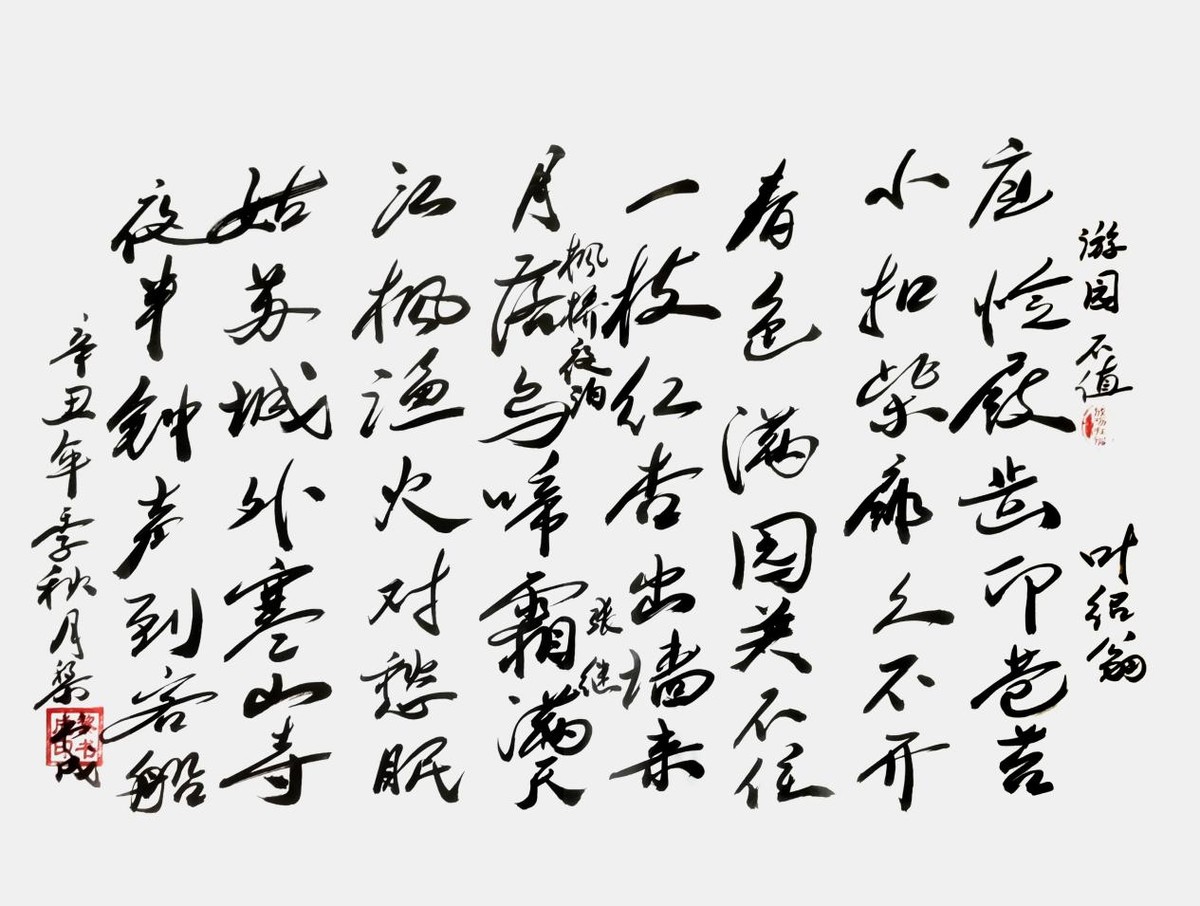 游园不值 叶绍翁
应怜屐齿印苍苔
小扣柴扉久不开
春色满园关不住
一枝红杏出墙来
枫桥夜泊 张继
月落乌啼霜满天
江枫渔火对愁眠
姑苏城外寒山寺
夜半钟声到客船
辛丑年季秋月黎书成
黎书成印